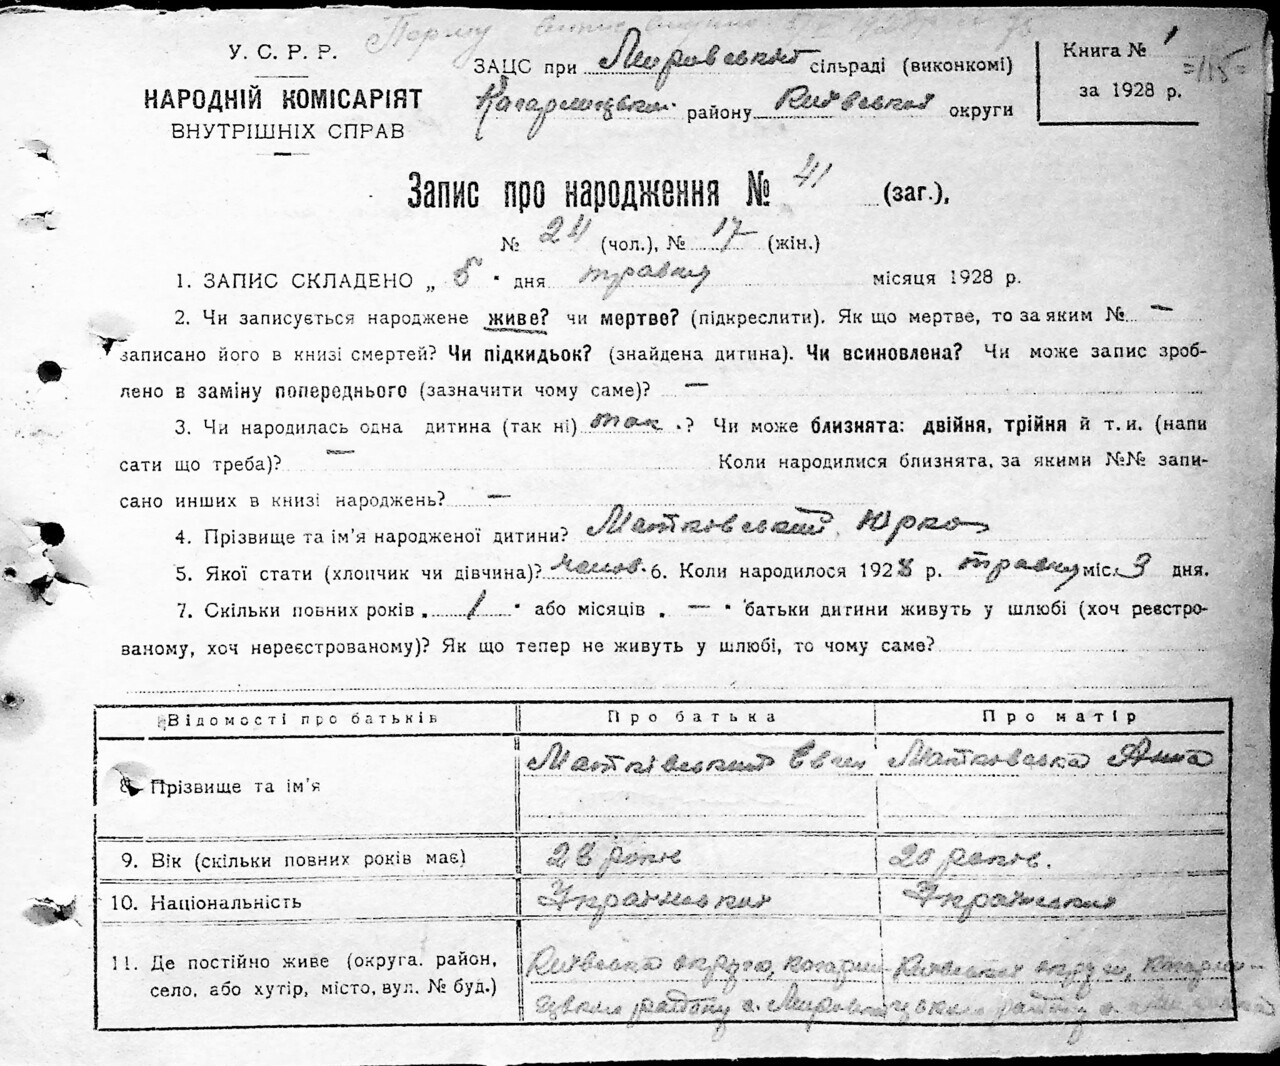 У. С. Р. Р.
НАРОДНІЙ КОМІСАРІЯТ
ВНУТРІШНІХ СПРАВ
ЗАЦС при Мировський сільраді (виконкомі)
Кагарлицьким району Київської округи
Книга № 1
=115=
за 1928 р.
Запис про народження № 41 (заг.),
№ 24 (чол.), № 17 (жін.)
1. ЗАПИС СКЛАДЕНО „ 5 " дня травня місяця 1928 р.
2. Чи записується народжене живе? чи мертве? (підкреслити). Як що мертве, то за яким № —
записано його в книзі смертей? Чи підкидьок? (знайдена дитина). Чи всиновлена? Чи може запис зроб-
лено в заміну попереднього (зазначити чому саме)? —
3. Чи народилась одна дитина (так ні) так .? Чи може близнята: двійня, трійня й т. и. (напи
сати що треба)? — Коли народилися близнята, за якими №№ запи-
сано инших в книзі народжень? —
4. Прізвище та ім'я народженої дитини? Матковський Юрко
5. Якої стати (хлопчик чи дівчина)? чолов. 6. Коли народилося 1928 р. травня міс. 3 дня.
7. Скільки повних років „ 1 " або місяців „ — " батьки дитини живуть у шлюбі (хоч реєстро-
ваному, хоч нереєстрованому)? Як що тепер не живуть у шлюбі, то чому саме?
Відомості про батьків Про батька Про матір
8. Прізвище та ім'я Матківський Євген Матковська Анна
9. Вік (скільки повних років має) 28 років 20 років.
10. Національність Українська Українська
11. Де постійно живе (округа, район, Київська округа, Кагарли- Київська округи, Кагарли-
село, або хутір, місто, вул. № буд.) цького району с. Мировка цького району с.